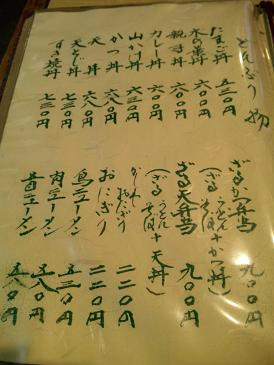 どんぶり物
たまご丼 五三〇円
木の葉丼 六〇〇円
親子丼 六〇〇円
カレー丼 六〇〇円
山かけ丼 六三〇円
かつ丼 六八〇円
天丼 六八〇円
天とじ丼 七三〇円
すき焼丼 七三〇円
ざるかつ弁当 九〇〇円
(ざるうどん又は+かつ丼)
ざる天弁当 九〇〇円
(ざるうどん又は+天丼)
おにぎり 二二〇円
鳥ラーメン 五三〇円
肉ラーメン 五八〇円
五目ラーメン 五八〇円